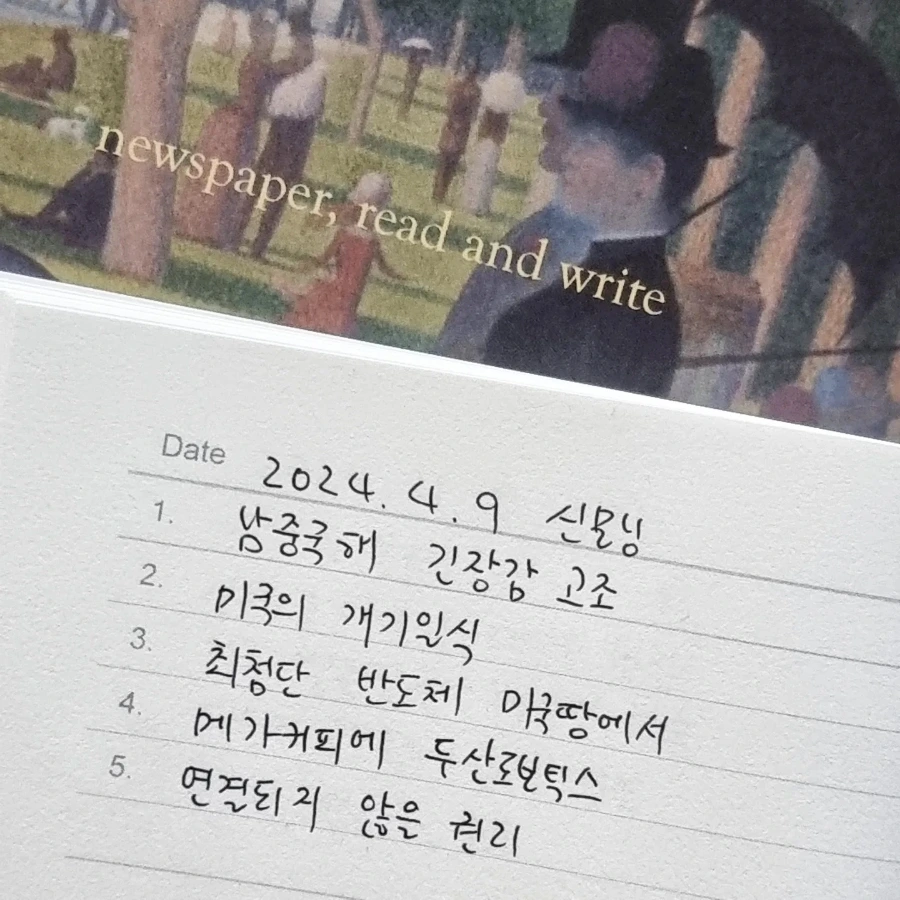 newspaper, read and write
Date 2024. 4. 9 신문닝
1. 남중국해 긴장감 고조
2. 미국의 개기일식
3. 최첨단 반도체 미국땅에서
4. 메가커피에 두산로보틱스
5. 연결되지 않을 권리